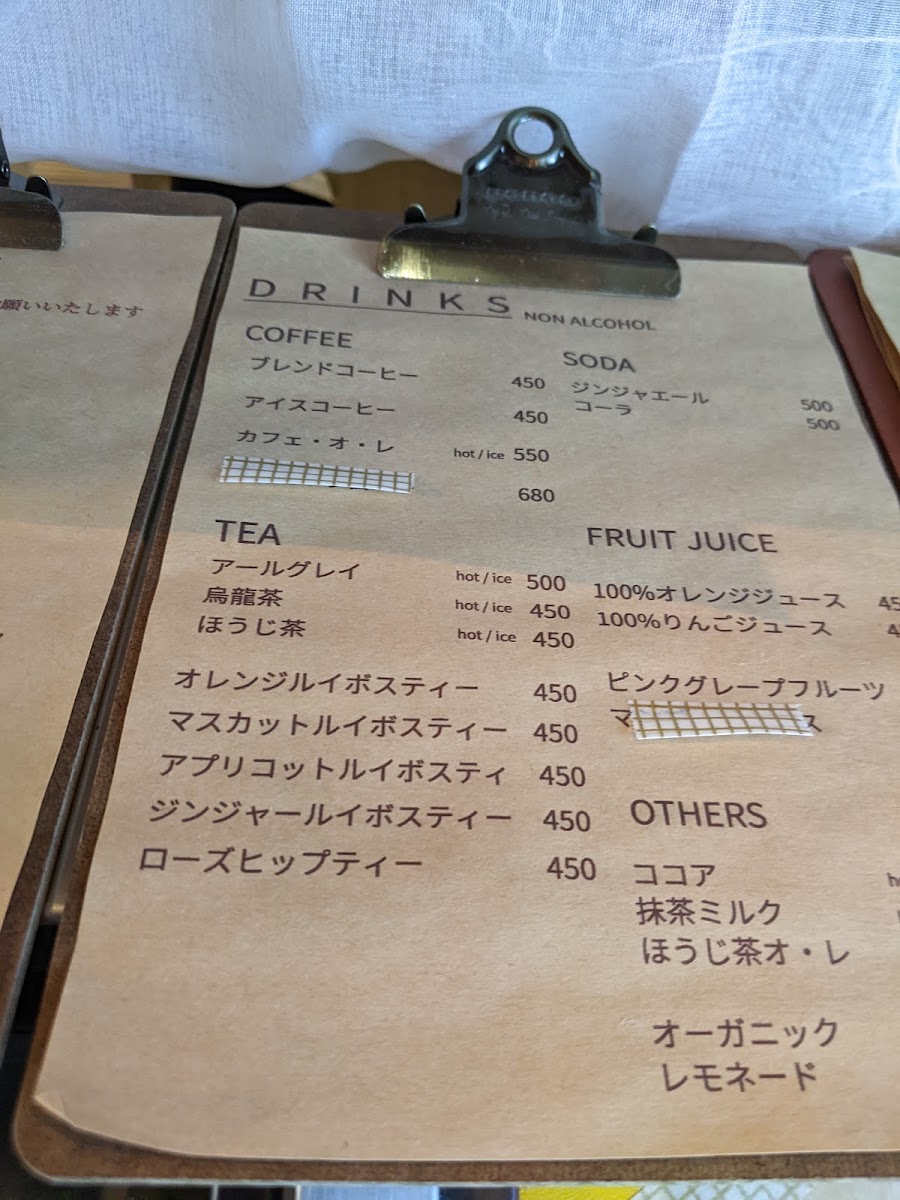 願いいたします
DRINKS NON ALCOHOL
COFFEE
ブレンドコーヒー 450
アイスコーヒー 450
カフェ・オ・レ hot / ice 550
680
TEA
アールグレイ hot / ice 500
烏龍茶 hot / ice 450
ほうじ茶 hot / ice 450
オレンジルイボスティー 450
マスカットルイボスティー 450
アプリコットルイボスティ 450
ジンジャールイボスティー 450
ローズヒップティー 450
SODA
ジンジャエール 500
コーラ 500
FRUIT JUICE
100%オレンジジュース 45
100%りんごジュース
ピンクグレープフルーツ
マ ス
OTHERS
ココア
抹茶ミルク
ほうじ茶オ・レ
オーガニック
レモネード